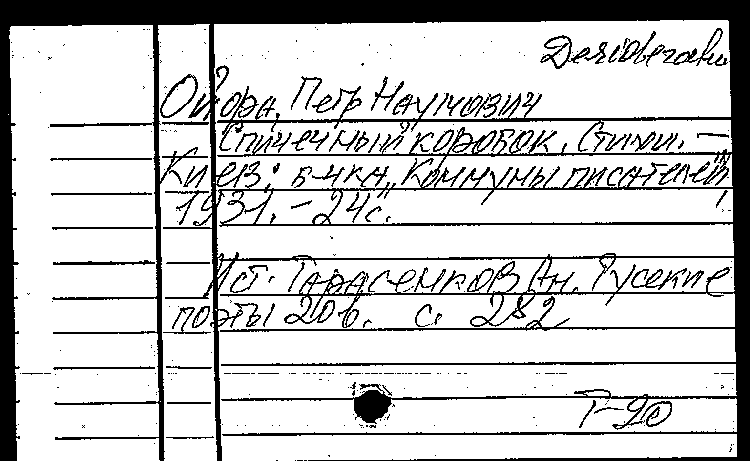 Ойфа, Петр Наумович
Спичечный коробок. Стихи. —
Киев: б-чка „Коммуны писателей",
1931. - 24 с.
Ист. Тарасенков Ан. Русские
поэты 20 в. с. 282
Т-20